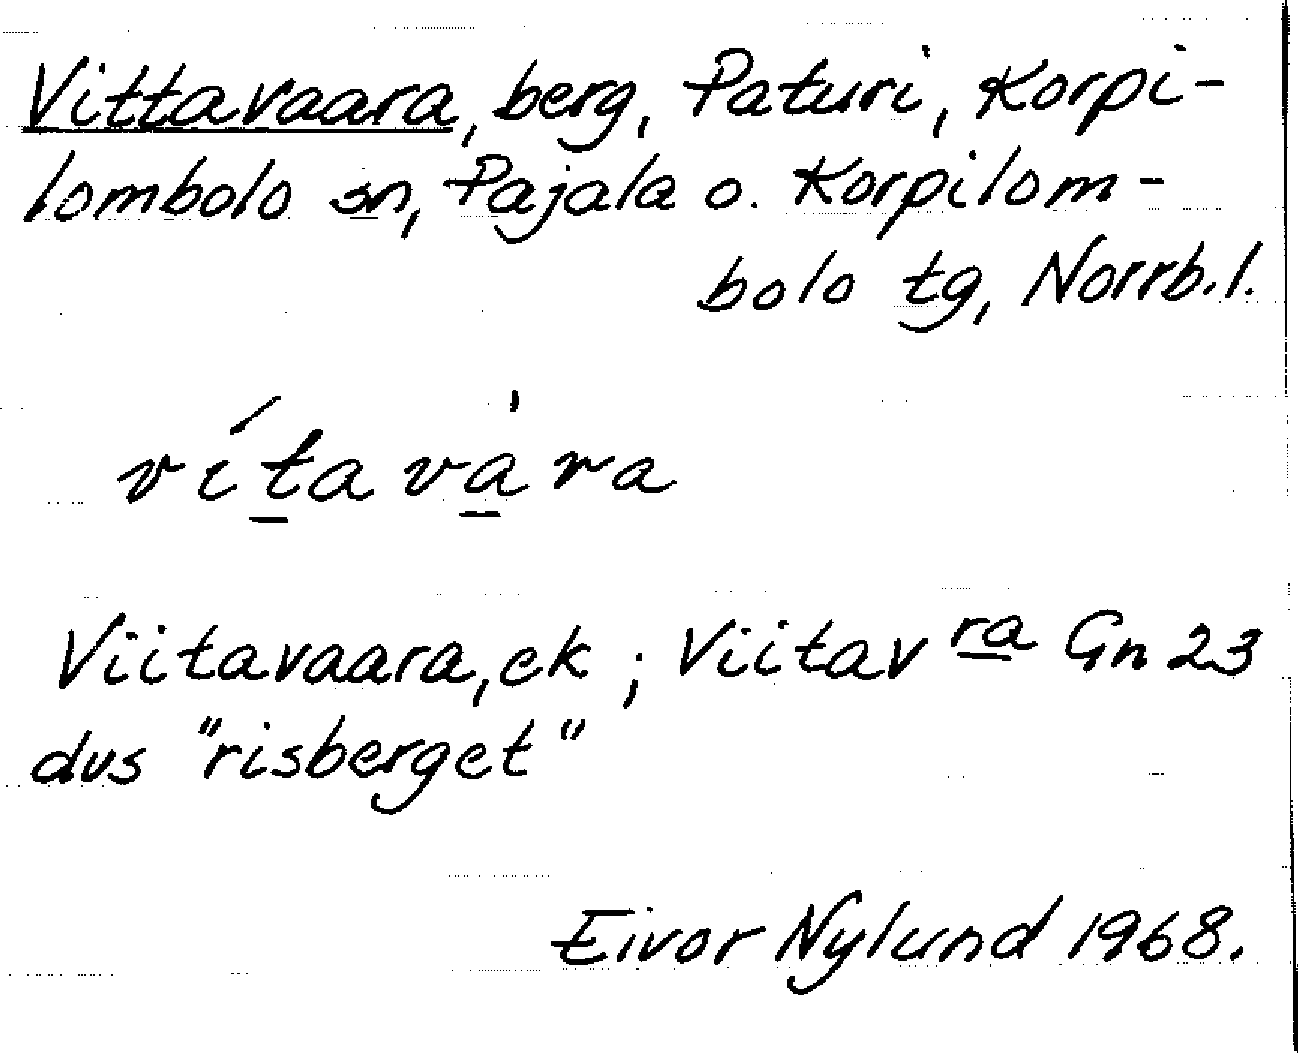 Vittavaara, berg, Paturi, Korpi-
lombolo sn, Pajala o. Korpilom-
bolo tg, Norrb.l.
vít̲ava̲̍ra
Viitavaara, ek ; Viitav ra Gn 23
dvs "risberget"
Eivor Nylund 1968.